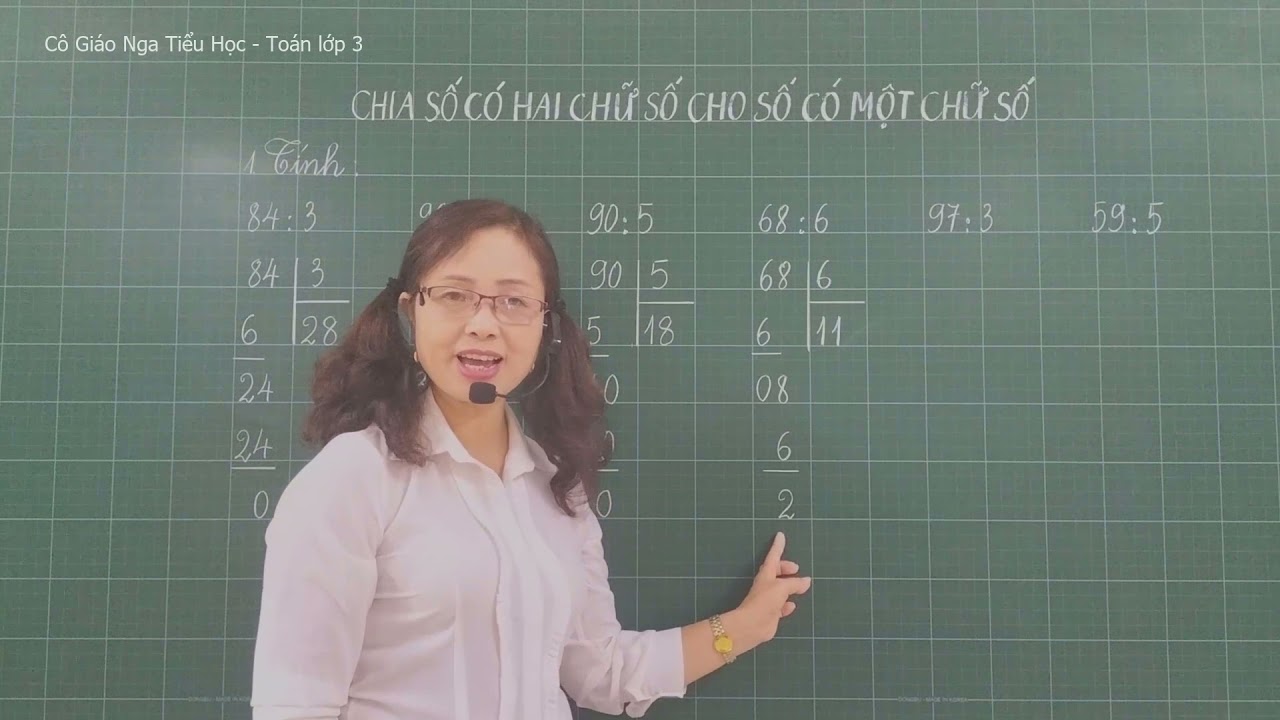 Cô Giáo Nga Tiểu Học - Toán lớp 3
CHIA SỐ CÓ HAI CHỮ SỐ CHO SỐ CÓ MỘT CHỮ SỐ
1 Tính:
84:3 90:5 68:6 97:3 59:5
84 3 90 5 68 6
6 28 5 18 6 11
24 0 08
24 6
0 0 2